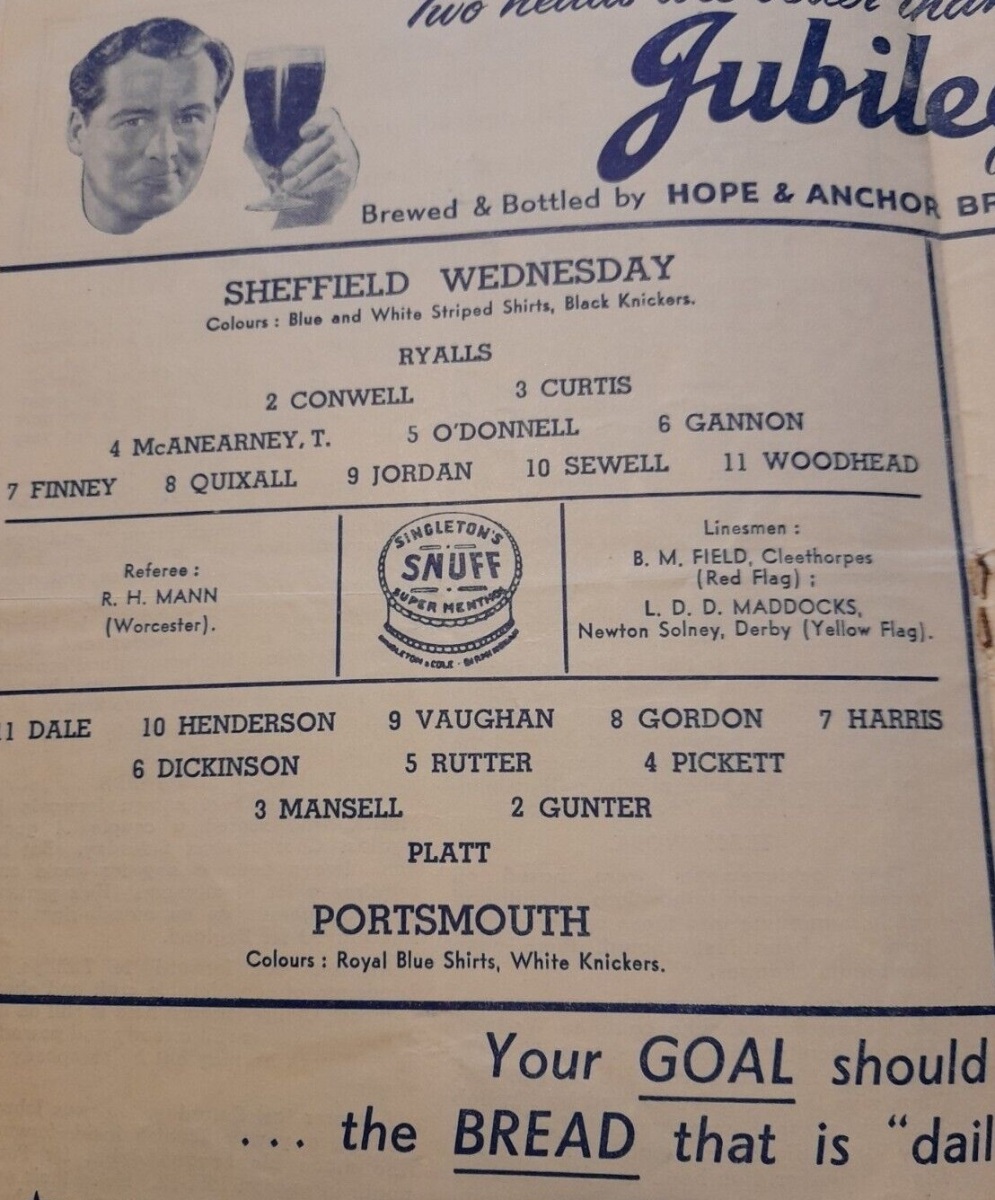 Two heads are better than
Jubilee
Brewed & Bottled by HOPE & ANCHOR BR
SHEFFIELD WEDNESDAY
Colours : Blue and White Striped Shirts, Black Knickers.
RYALLS
2 CONWELL 3 CURTIS
4 McANEARNEY, T. 5 O'DONNELL 6 GANNON
7 FINNEY 8 QUIXALL 9 JORDAN 10 SEWELL 11 WOODHEAD
Referee :
R. H. MANN
(Worcester).
SINGLETON'S
SNUFF
SUPER MENTHOL
SINGLETON & COLE · BIRMINGHAM
Linesmen :
B. M. FIELD, Cleethorpes
(Red Flag) ;
L. D. D. MADDOCKS,
Newton Solney, Derby (Yellow Flag).
11 DALE 10 HENDERSON 9 VAUGHAN 8 GORDON 7 HARRIS
6 DICKINSON 5 RUTTER 4 PICKETT
3 MANSELL 2 GUNTER
PLATT
PORTSMOUTH
Colours : Royal Blue Shirts, White Knickers.
Your GOAL should
... the BREAD that is "dail